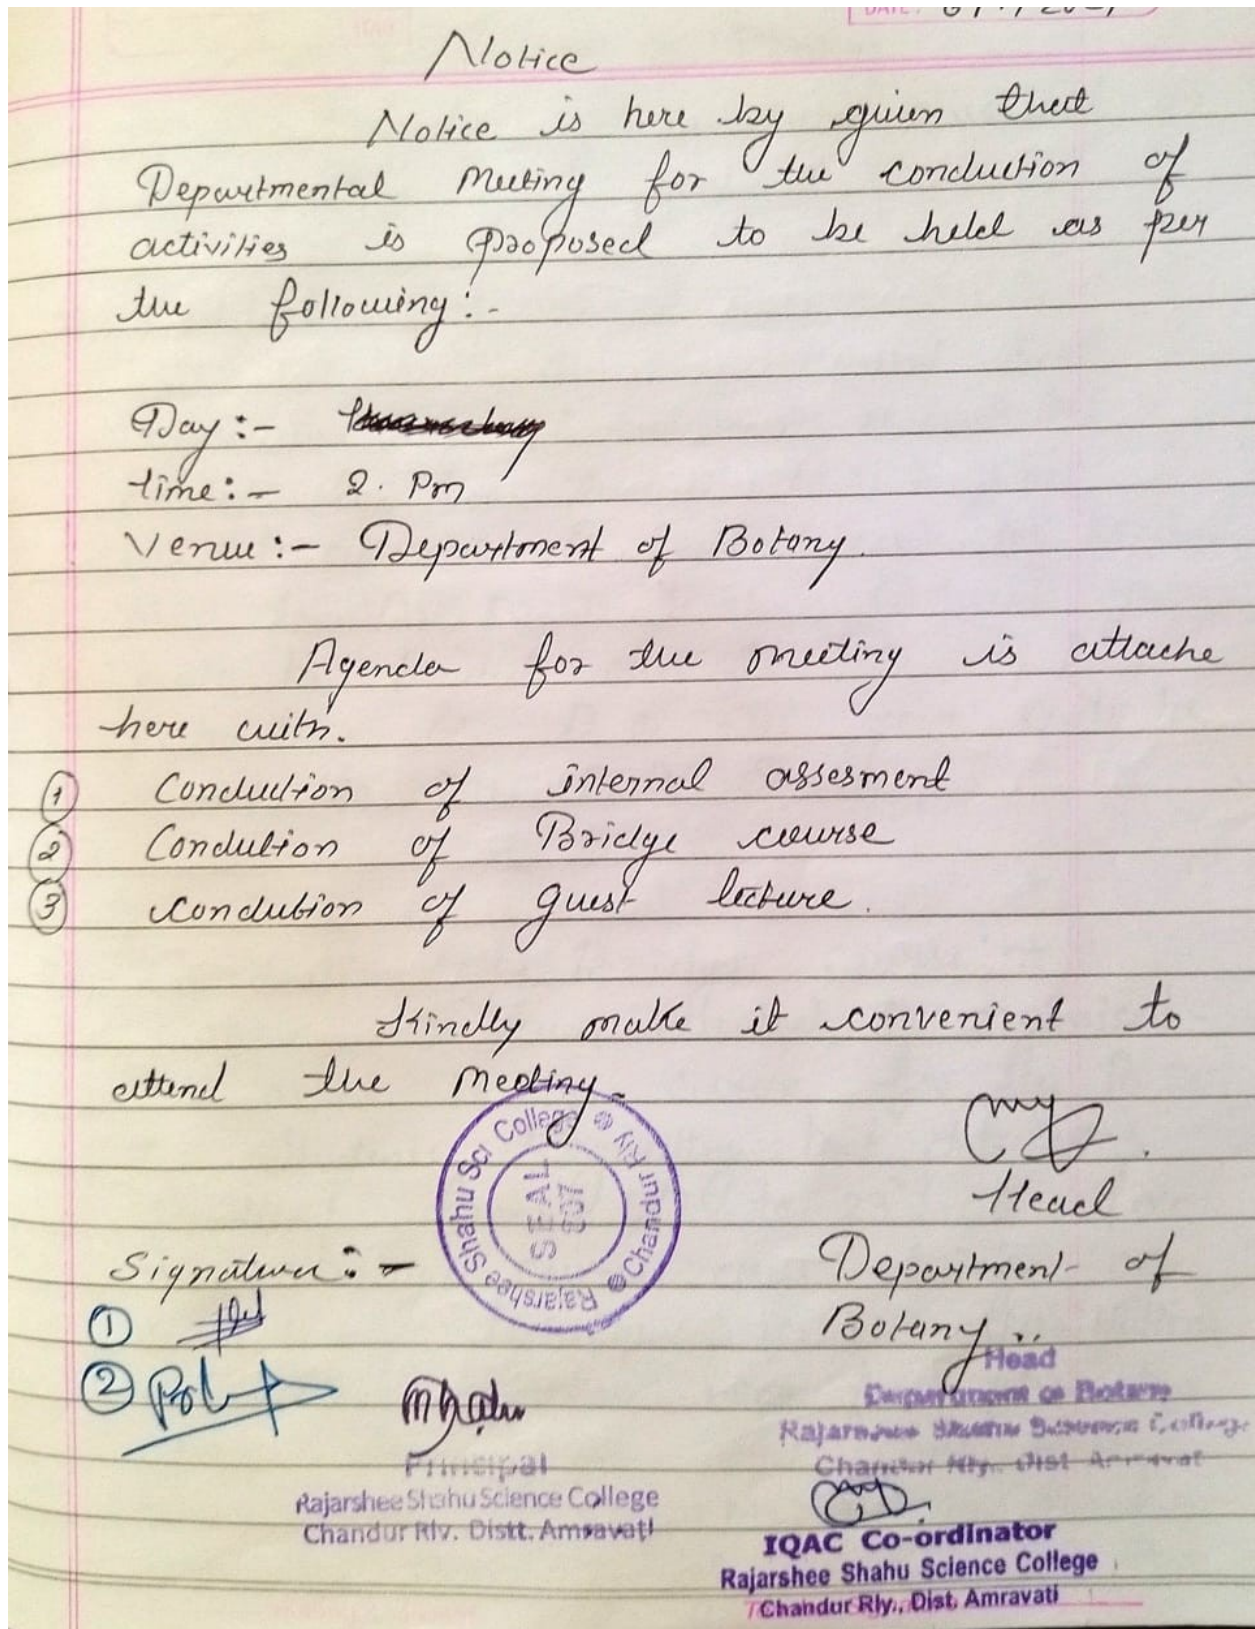 DATE:
Notice
Notice is here by given that
Departmental Meeting for the conduction of
activities is proposed to be held as per
the following:-
Day:-
time:- 2. Pm
Venue:- Department of Botany.
Agenda for the meeting is attache
here with.
1 Conduction of internal assesment
2 Condution of Bridge course
3 condution of guest lecture.
Kindly make it convenient to
attend the Meeting.
Rajarshee Shahu Sci College Chandur Rly
SEAL
Head
Signature:- Department of
Botany..
1
2
Head
Department of Botany
Rajarshee Shahu Science College
Chandur Rly. Dist Amravati
Principal
Rajarshee Shahu Science College
Chandur Rly. Distt. Amravati
IQAC Co-ordinator
Rajarshee Shahu Science College
Chandur Rly., Dist. Amravati